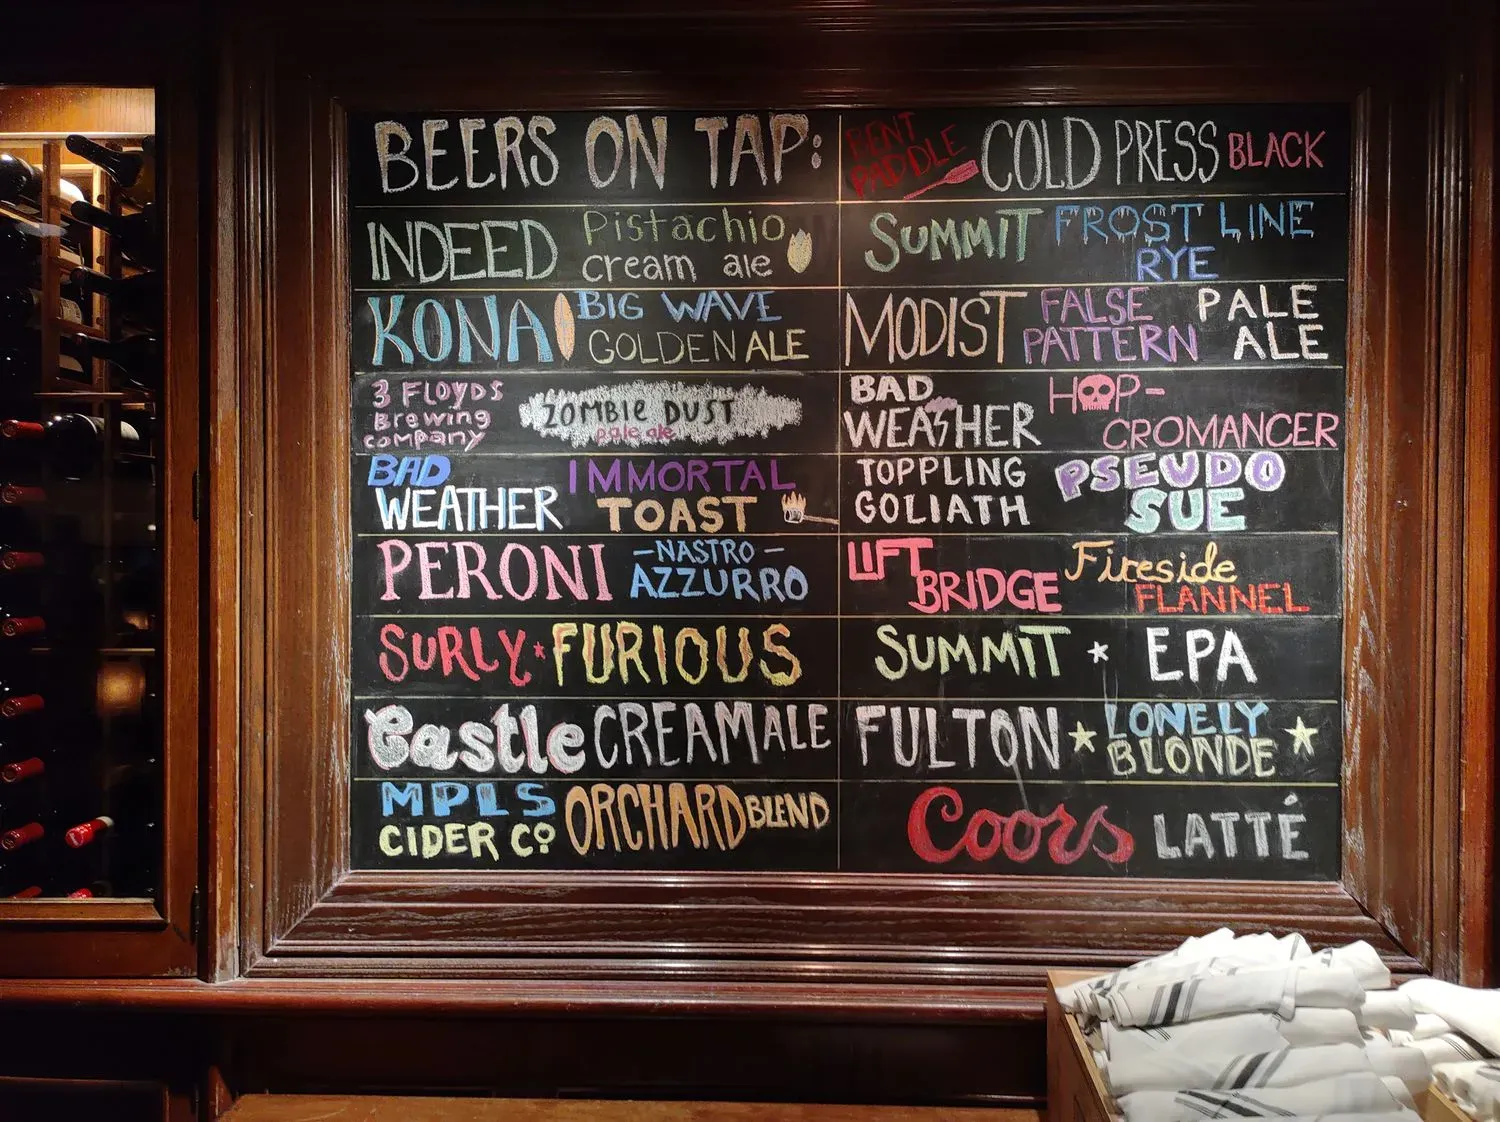 BEERS ON TAP:
INDEED Pistachio
cream ale
KONA BIG WAVE
GOLDEN ALE
3 FLOYDS
Brewing
company
ZOMBIE DUST
pale ale
BAD
WEATHER
IMMORTAL
TOAST
PERONI -NASTRO-
AZZURRO
SURLY * FURIOUS
Castle CREAM ALE
MPLS
CIDER CO
ORCHARD BLEND
BENT
PADDLE
COLD PRESS BLACK
SUMMIT FROST LINE
RYE
MODIST FALSE
PATTERN
PALE
ALE
BAD
WEATHER
HOP-
CROMANCER
TOPPLING
GOLIATH
PSEUDO
SUE
LIFT
BRIDGE
Fireside
FLANNEL
SUMMIT * EPA
FULTON ★ LONELY
BLONDE ★
Coors LATTÉ